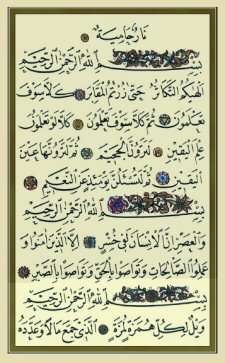 نَارٌ حَامِيَةٌ
بِسْمِ اللَّهِ الرَّحْمٰنِ الرَّحِيمِ
اَلْهٰيكُمُ التَّكَاثُرُ حَتّٰى زُرْتُمُ الْمَقَابِرَ كَلَّا سَوْفَ
تَعْلَمُونَ ثُمَّ كَلَّا سَوْفَ تَعْلَمُونَ كَلَّا لَوْ تَعْلَمُونَ
عِلْمَ الْيَقِينِ لَتَرَوُنَّ الْجَحِيمَ ثُمَّ لَتَرَوُنَّهَا عَيْنَ
الْيَقِينِ ثُمَّ لَتُسْئَلُنَّ يَوْمَئِذٍ عَنِ النَّعِيمِ
بِسْمِ اللَّهِ الرَّحْمٰنِ الرَّحِيمِ
وَالْعَصْرِ اِنَّ الْاِنْسَانَ لَفِي خُسْرٍ اِلَّا الَّذِينَ اٰمَنُوا وَ
عَمِلُوا الصَّالِحَاتِ وَتَوَاصَوْا بِالْحَقِّ وَتَوَاصَوْا بِالصَّبْرِ
بِسْمِ اللَّهِ الرَّحْمٰنِ الرَّحِيمِ
وَيْلٌ لِكُلِّ هُمَزَةٍ لُمَزَةٍ اَلَّذِي جَمَعَ مَالًا وَعَدَّدَهُ